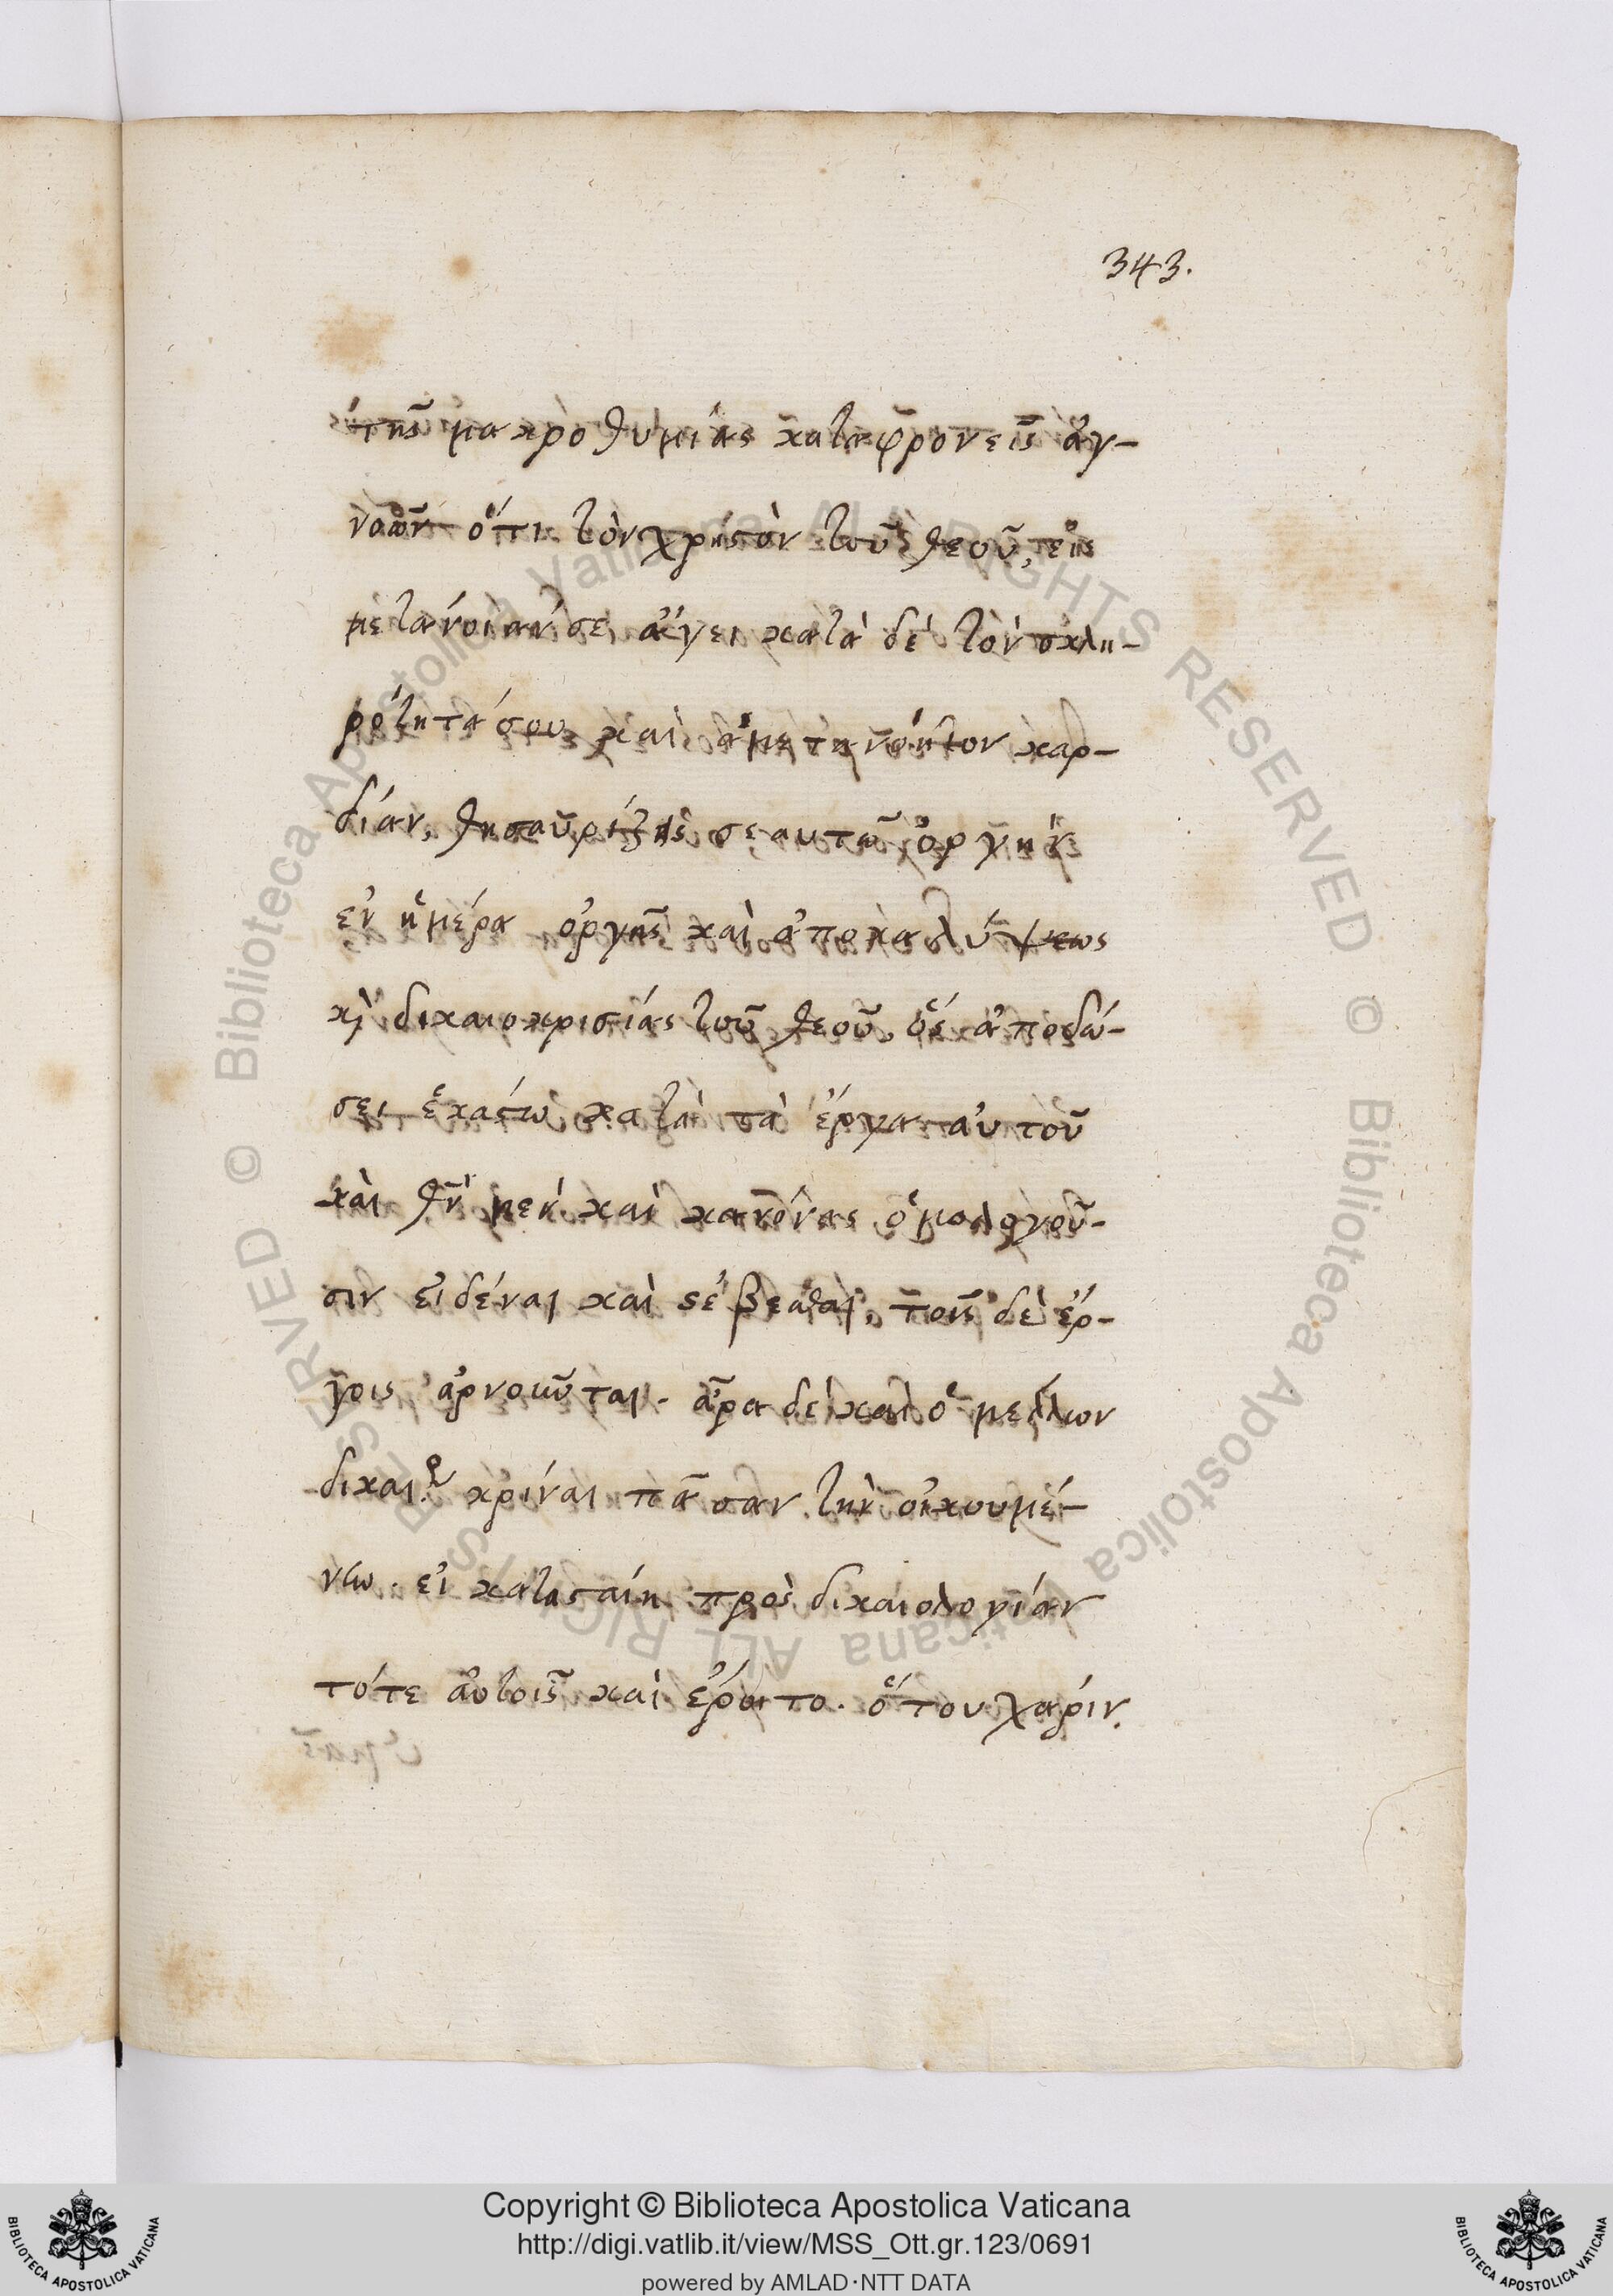 343.
της̃ μακρὸθυμίας καταφρονεῖς ἀγ-
νοῶν ὅτι τὸν χρηστὸν τοῦ θεοῦ, εἰς
μετάνοιαν σε ἄγει κατὰ δὲ τὸν σκλη-
ρότητά σου καὶ ἀμετανόητον καρ-
δίαν, θησαυρίζεις σεαυτῶ ὀργὴν
ἐν ἡμέρα ὀργῆς καὶ ἀποκαλύψεως
κὶ δικαιοκρισίας τοῦ θεοῦ. ὅς ἀποδώ-
σει ἑκάστω κατὰ τὰ ἔργα αὐτοῦ
καὶ θν̀ μεν καὶ κανόνας ὁμολογοῦ-
σιν εἰδέναι καὶ σέβεσθαι, τοῖς δὲ ἔρ-
γοις ἀρνοῦνται. ἆρα δὲ καὶ ὁ μέλλων
δικαι κρίναι πᾶσαν τὴν οἰκουμέ-
νω. εἰ κατασταίη πρὸς δικαιολογίαν
τότε αὐτοῖς καὶ ἔροιτο. ὅτου χάριν.
Copyright © Biblioteca Apostolica Vaticana
http://digi.vatlib.it/view/MSS_Ott.gr.123/0691
powered by AMLAD·NTT DATA
BIBLIOTECA APOSTOLICA VATICANA
BIBLIOTECA APOSTOLICA VATICANA
© Biblioteca Apostolica Vaticana ALL RIGHTS RESERVED © Biblioteca Apostolica Vaticana ALL RIGHTS RESERVED